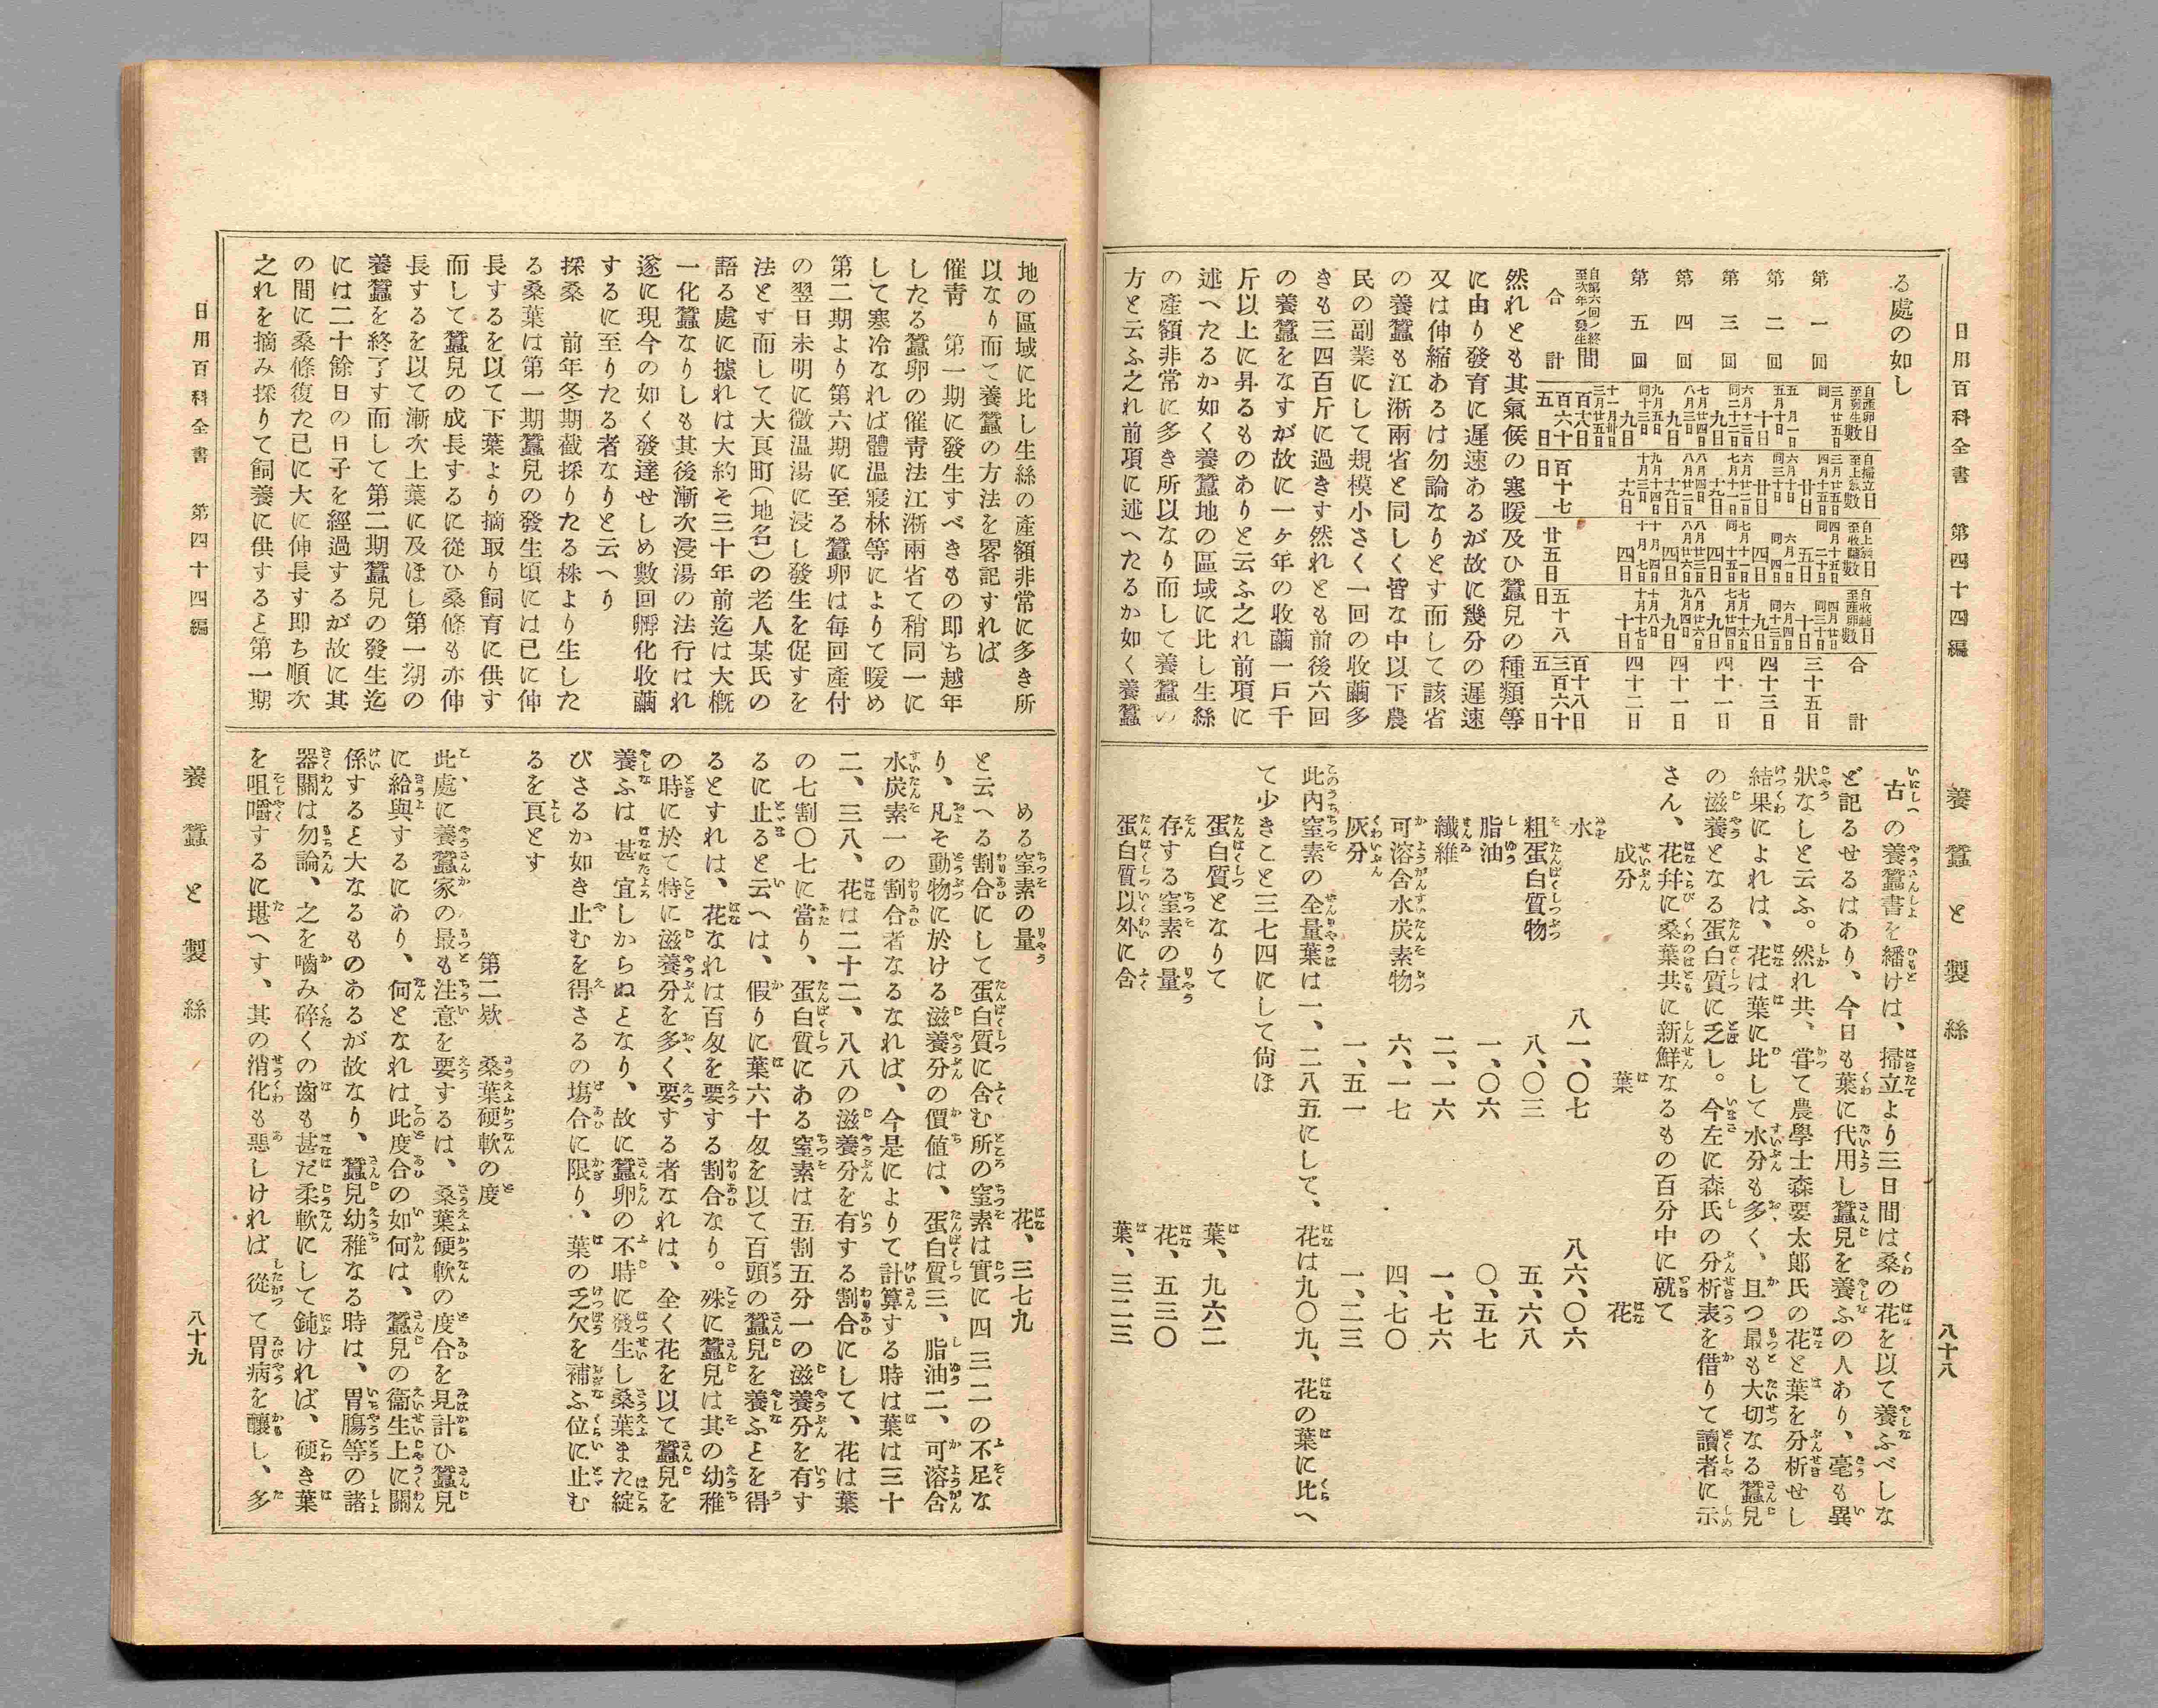 日用百科全書　第四十四編
養蠶と製絲
八十八
る處の如し
自產卵日至發生數
自掃立日至上蔟數
自上蔟日至收繭數
自收繭日至產卵數
合計
第一回
三月廿五日
三十五日
第二回
五月一日
五月十日
十日
四十三日
第三回
六月十三日
同二十二日
九日
四十一日
第四回
七月廿四日
八月三日
九日
四十一日
第五回
九月五日
同十三日
九日
四十二日
自第六回ノ終至次年ノ發生間
百十八日
百十八日
合計
百六十五日
百十七日
廿五日
五十八日
三百六十五日
然れとも其氣候の寒暖及ひ蠶兒の種類等
に由り發育に遲速あるが故に幾分の遲速
又は伸縮あるは勿論なりとす而して該省
の養蠶も江淅兩省と同しく皆な中以下農
民の副業にして規模小さく一回の收繭多
きも三四百斤に過きす然れとも前後六回
の養蠶をなすが故に一ヶ年の收繭一戶千
斤以上に昇るものありと云ふ之れ前項に
述へたるか如く養蠶地の區域に比し生絲
の產額非常に多き所以なり而して養蠶の
方と云ふ之れ前項に述へたるか如く養蠶
古の養蠶書を繙けは、掃立より三日間は桑の花を以て養ふべしな
ど記るせるはあり、今日も葉に代用し蠶兒を養ふの人あり、毫も異
狀なしと云ふ。然れ共、甞て農學士森要太郞氏の花と葉を分析せし
結果によれは、花は葉に比して水分も多く、且つ最も大切なる蠶兒
の滋養となる蛋白質に乏し。今左に森氏の分析表を借りて讀者に示
さん、花幷に桑葉共に新鮮なるもの百分中に就て
成分　葉　花
水　八一、〇七　八六、〇六
粗蛋白質物　八、〇三　五、六八
脂油　一、〇六　〇、五七
纎維　二、一六　一、七六
可溶含水炭素物　六、一七　四、七〇
灰分　一、五一　一、二三
此內窒素の全量葉は一、二八五にして、花は九〇九、花の葉に比へ
て少きこと三七四にして尙ほ
蛋白質となりて　葉、九六二
存する窒素の量　花、五三〇
蛋白質以外に含　葉、三二三
める窒素の量　花、三七九
と云へる割合にして蛋白質に含む所の窒素は實に四三二の不足な
り、凡そ動物に於ける滋養分の價値は、蛋白質三、脂油二、可溶含
水炭素一の割合者なるなれば、今是によりて計算する時は葉は三十
二、三八、花は二十二、八八の滋養分を有する割合にして、花は葉
の七割〇七に當り、蛋白質にある窒素は五割五分一の滋養分を有す
るに止ると云へは、假りに葉六十匁を以て百頭の蠶兒を養ふとを得
るとすれは、花なれは百匁を要する割合なり。殊に蠶兒は其の幼稚
の時に於て特に滋養分を多く要する者なれは、全く花を以て蠶兒を
養ふは甚宜しからぬとなり、故に蠶卵の不時に發生し桑葉また綻
びさるか如き止むを得さるの塲合に限り、葉の乏欠を補ふ位に止む
るを良とす
第二欵　桑葉硬軟の度
此處に養蠶家の最も注意を要するは、桑葉硬軟の度合を見計ひ蠶兒
に給與するにあり、何となれは此度合の如何は、蠶兒の衞生上に關
係すると大なるものあるが故なり、蠶兒幼稚なる時は、胃膓等の諸
器關は勿論、之を嚙み碎くの齒も甚だ柔軟にして鈍ければ、硬き葉
を咀嚼するに堪へす、其の消化も惡しければ從て胃病を釀し、多
地の區域に比し生絲の產額非常に多き所
以なり而て養蠶の方法を畧記すれば
催靑　第一期に發生すべきもの即ち越年
したる蠶卵の催靑法江淅兩省て稍同一に
して寒冷なれば體溫寢林等によりて暖め
第二期より第六期に至る蠶卵は每回產付
の翌日未明に微溫湯に浸し發生を促すを
法とす而して大良町（地名）の老人某氏の
語る處に據れは大約そ三十年前迄は大槪
一化蠶なりしも其後漸次浸湯の法行はれ
遂に現今の如く發達せしめ數回孵化收繭
するに至りたる者なりと云へり
採桑　前年冬期截採りたる株より生した
る桑葉は第一期蠶兒の發生頃には已に伸
長するを以て下葉より摘取り飼育に供す
而して蠶兒の成長するに從ひ桑條も亦伸
長するを以て漸次上葉に及ほし第一期の
養蠶を終了す而して第二期蠶兒の發生迄
には二十餘日の日子を經過するが故に其
の間に桑條復た已に大に伸長す即ち順次
之れを摘み採りて飼養に供すると第一期
日用百科全書　第四十四編
養蠶と製絲
八十九